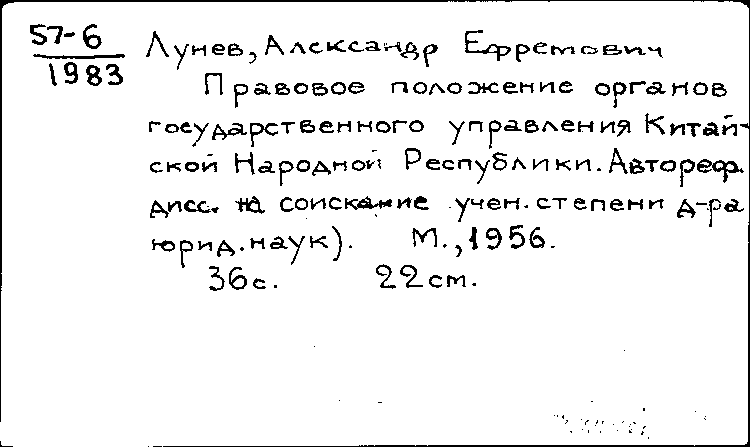 57-6
1983
Лунев, Александр Ефремович
Правовое положение органов
государственного управления Китай-
ской Народной Республики. Автореф.
дисс. на соискание учен. степени д-ра
юрид. наук). М., 1956.
36с. 22см.